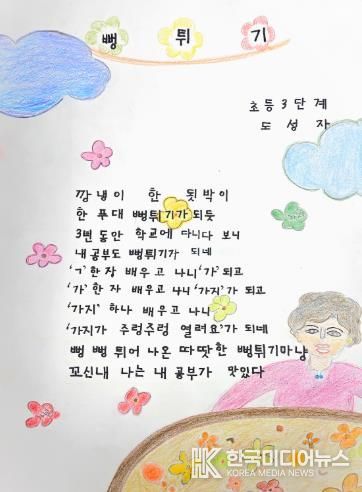 뻥 튀 기
초등3단계
도성자
깡냉이 한 됫박이
한 푸대 뻥튀기가 되듯
3년 동안 학교에 다니다 보니
내 공부도 뻥튀기가 되네
'ㄱ' 한 자 배우고 나니 '가' 되고
'가' 한 자 배우고 나니 '가지'가 되고
'가지' 하나 배우고 나니
'가지가 주렁주렁 열려요'가 되네
뻥 뻥 튀어 나온 따땃한 뻥튀기마냥
꼬신내 나는 내 공부가 맛있다
HK 한국미디어뉴스
KOREA MEDIA NEWS